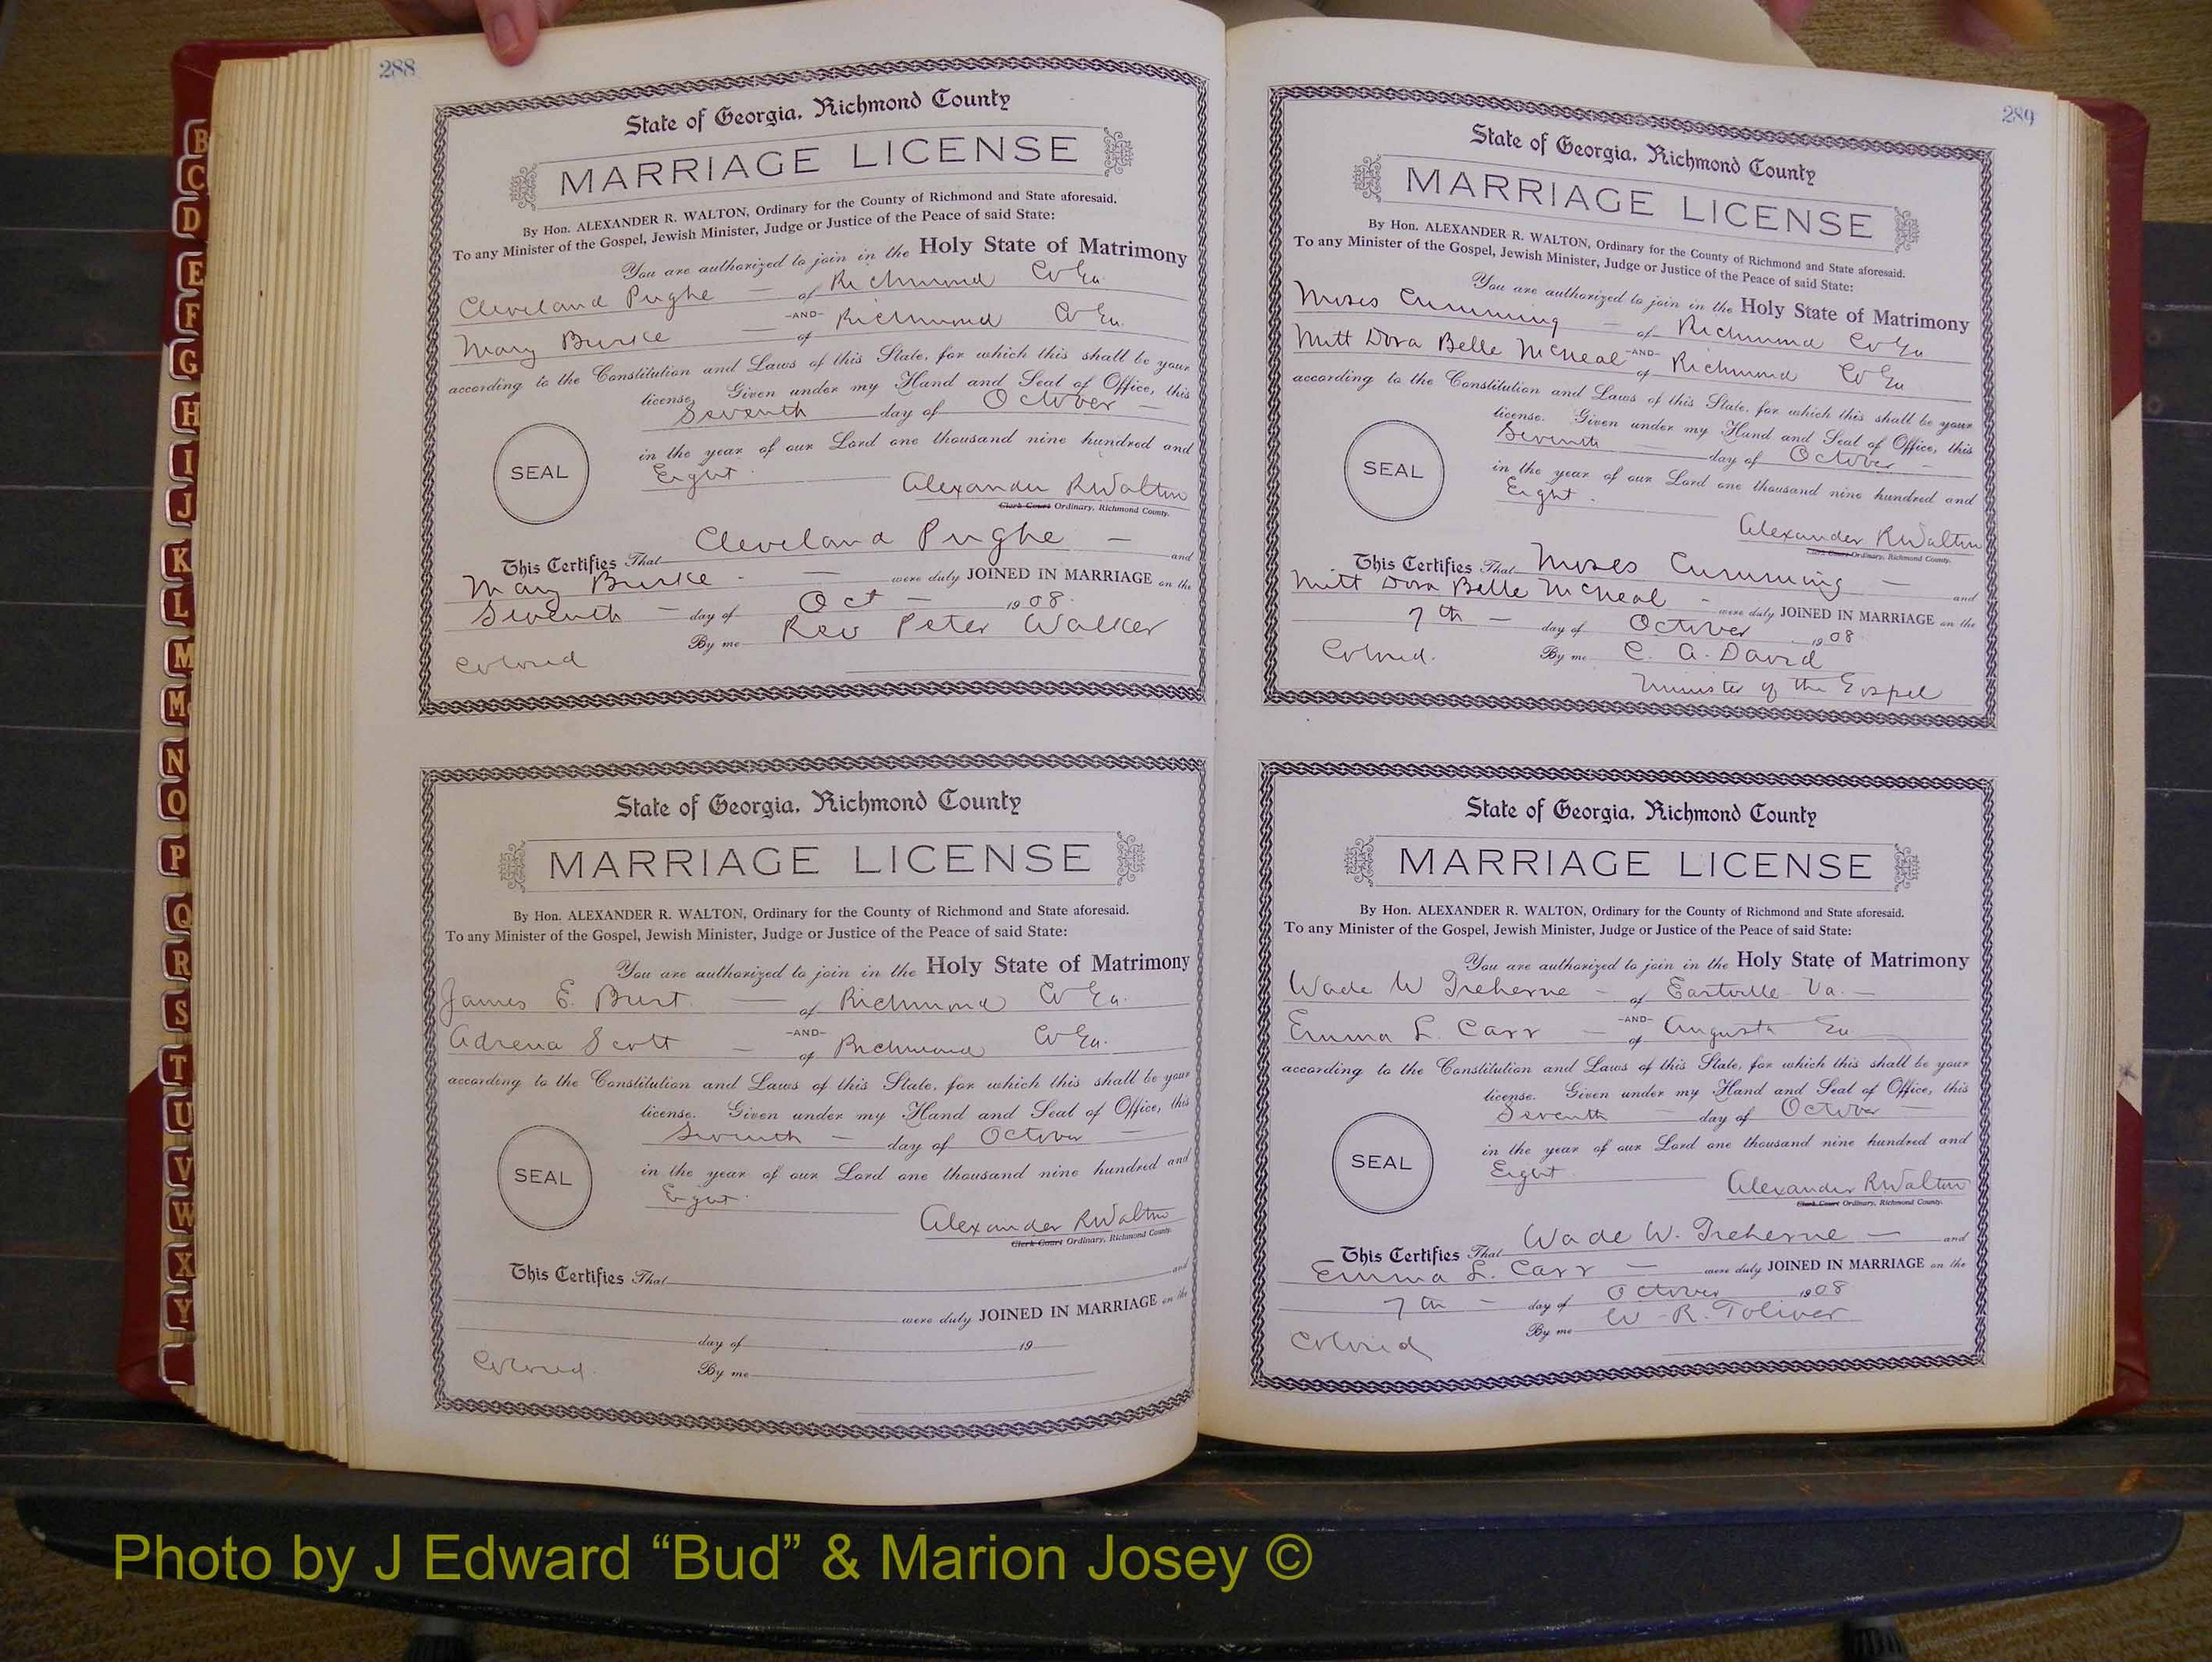 288
State of Georgia, Richmond County
MARRIAGE LICENSE
By Hon. ALEXANDER R. WALTON, Ordinary for the County of Richmond and State aforesaid.
To any Minister of the Gospel, Jewish Minister, Judge or Justice of the Peace of said State:
You are authorized to join in the Holy State of Matrimony
Cleveland Pughe — of Richmond Co Ga.
-AND-
Mary Burke — of Richmond Co Ga.
according to the Constitution and Laws of this State, for which this shall be your
license. Given under my Hand and Seal of Office, this
Seventh day of October —
SEAL
in the year of our Lord one thousand nine hundred and
Eight.
Alexander R Walton
Clerk Court Ordinary, Richmond County.
This Certifies That Cleveland Pughe — and
Mary Burke — were duly JOINED IN MARRIAGE on the
Seventh — day of Oct — 1908.
By me Rev Peter Walker
Colored
State of Georgia, Richmond County
MARRIAGE LICENSE
By Hon. ALEXANDER R. WALTON, Ordinary for the County of Richmond and State aforesaid.
To any Minister of the Gospel, Jewish Minister, Judge or Justice of the Peace of said State:
You are authorized to join in the Holy State of Matrimony
James E. Burt. — of Richmond Co Ga.
-AND-
Adrena Scott — of Richmond Co Ga.
according to the Constitution and Laws of this State, for which this shall be your
license. Given under my Hand and Seal of Office, this
Seventh — day of October —
SEAL
in the year of our Lord one thousand nine hundred and
Eight.
Alexander R Walton
Clerk Court Ordinary, Richmond County.
This Certifies That and
were duly JOINED IN MARRIAGE on the
day of 19
By me
Colored.
289
State of Georgia, Richmond County
MARRIAGE LICENSE
By Hon. ALEXANDER R. WALTON, Ordinary for the County of Richmond and State aforesaid.
To any Minister of the Gospel, Jewish Minister, Judge or Justice of the Peace of said State:
You are authorized to join in the Holy State of Matrimony
Moses Cumming — of Richmond Co Ga
-AND-
Mitt Dora Belle McNeal of Richmond Co Ga
according to the Constitution and Laws of this State, for which this shall be your
license. Given under my Hand and Seal of Office, this
Seventh day of October —
SEAL
in the year of our Lord one thousand nine hundred and
Eight.
Alexander R Walton
Clerk Court Ordinary, Richmond County.
This Certifies That Moses Cumming — and
Mitt Dora Belle McNeal — were duly JOINED IN MARRIAGE on the
7th — day of October 1908
By me C. A. David
Minister of the Gospel
Colored.
State of Georgia, Richmond County
MARRIAGE LICENSE
By Hon. ALEXANDER R. WALTON, Ordinary for the County of Richmond and State aforesaid.
To any Minister of the Gospel, Jewish Minister, Judge or Justice of the Peace of said State:
You are authorized to join in the Holy State of Matrimony
Wade W Treherne — of Eastville Va. —
-AND-
Emma L. Carr — of Augusta Ga
according to the Constitution and Laws of this State, for which this shall be your
license. Given under my Hand and Seal of Office, this
Seventh — day of October —
SEAL
in the year of our Lord one thousand nine hundred and
Eight.
Alexander R Walton
Clerk Court Ordinary, Richmond County.
This Certifies That Wade W. Treherne — and
Emma L. Carr — were duly JOINED IN MARRIAGE on the
7th — day of October 1908
By me W. R. Toliver
Colored
B
C
D
E
F
G
H
I
J
K
L
M
Mc
N
O
P
Q
R
S
T
U
V
W
X
Y
Photo by J Edward “Bud” & Marion Josey ©